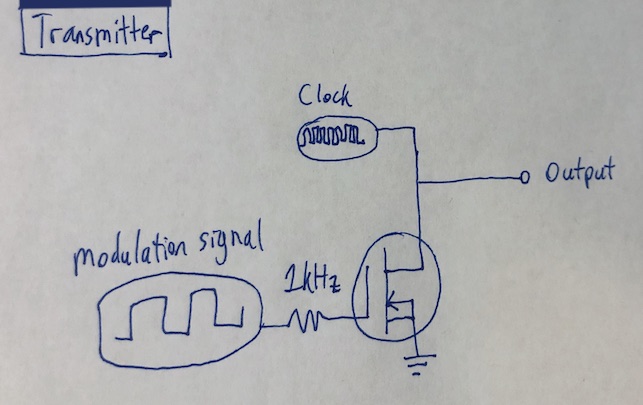 Transmitter
Clock
Output
modulation signal
1kHz